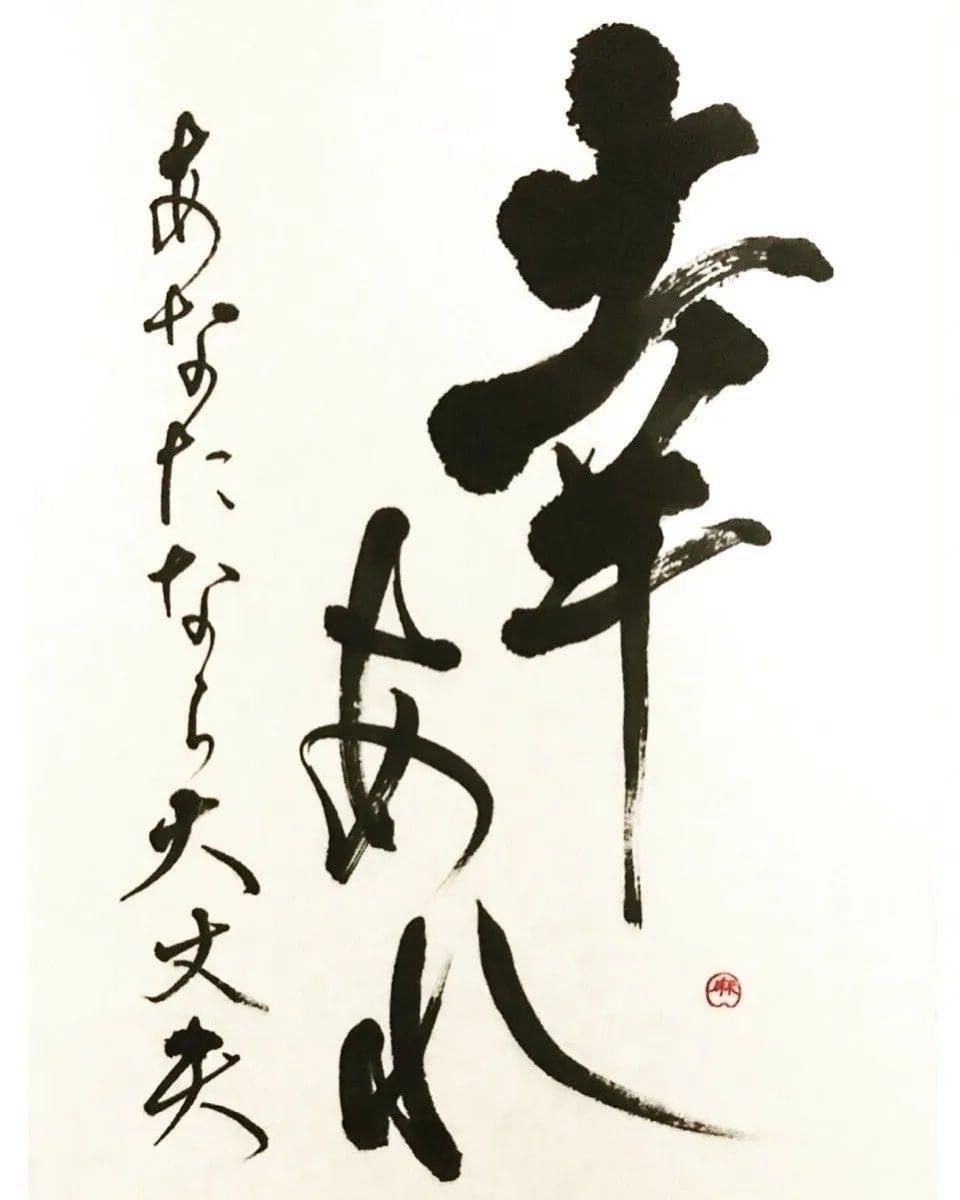 幸あれ
あなたなら大丈夫
麻